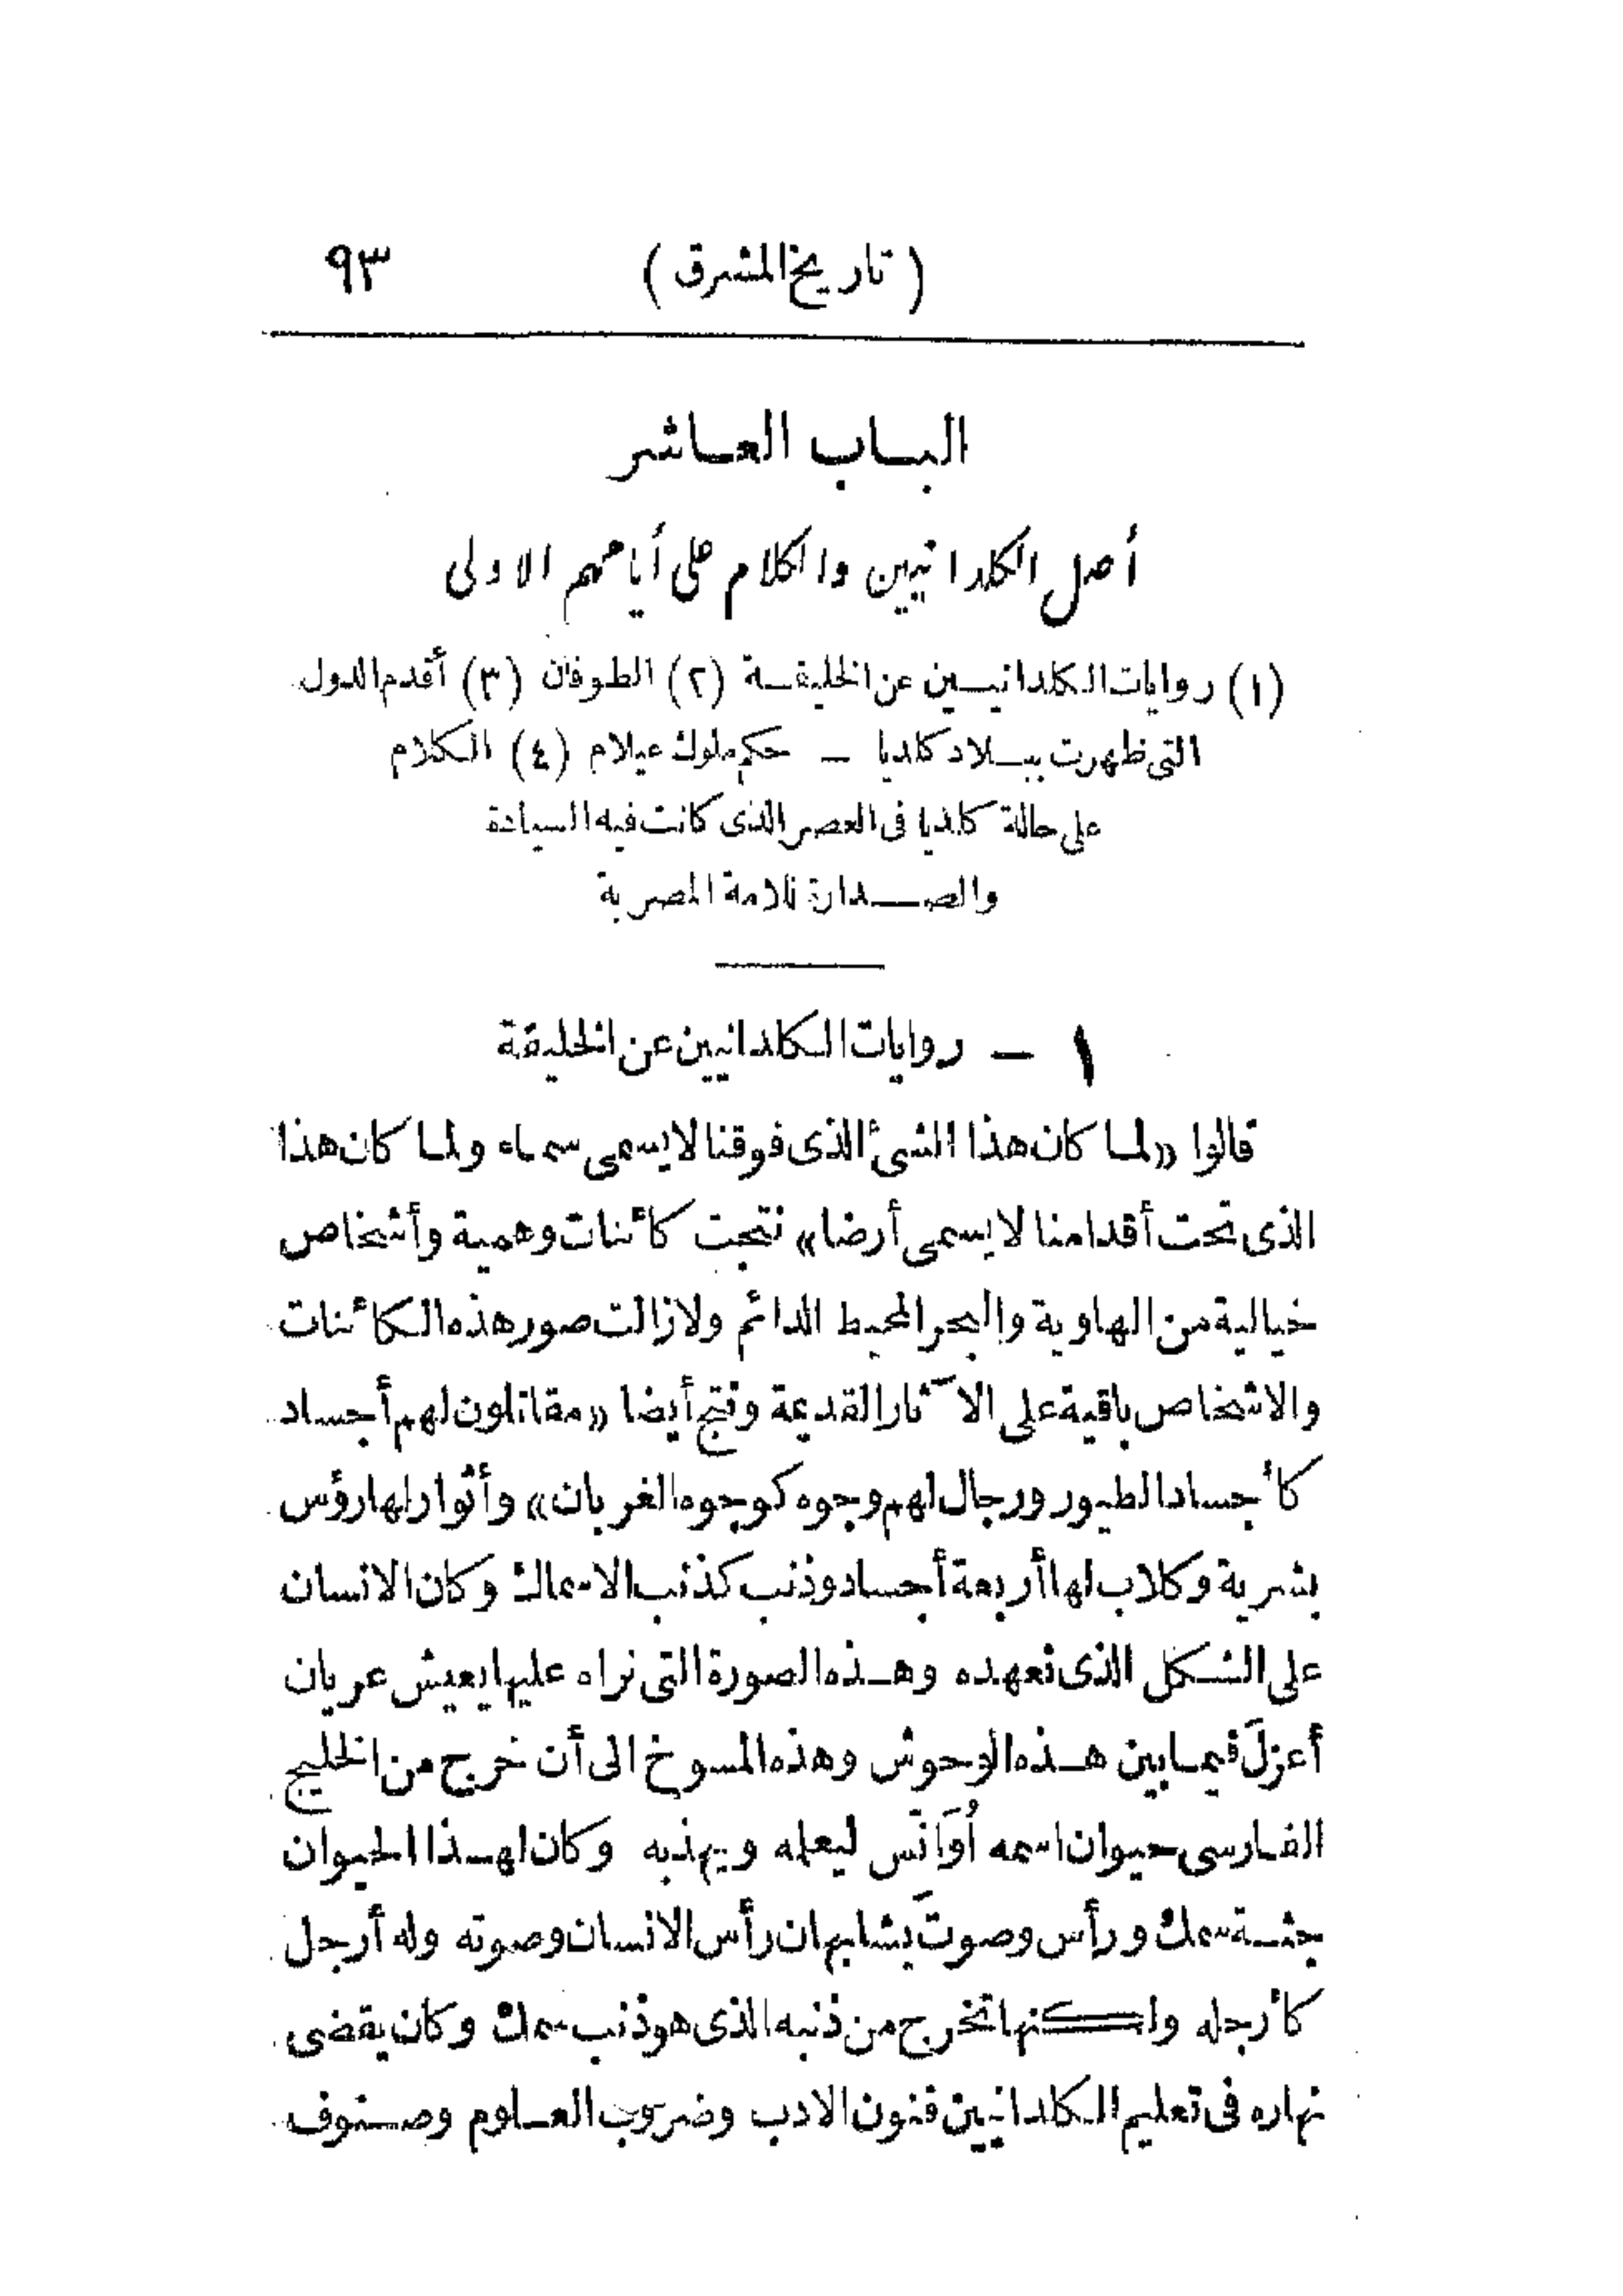 (تاريخ المشرق) ٩٣
الباب العاشر
أصل الكلدانيين والكلام على أيامهم الاولى
(١) روايات الكلدانيين عن الخليقة (٢) الطوفان (٣) أقدم الدول
التى ظهرت ببلاد كلديا – حكم ملوك عيلام (٤) الكلام
على حالة كلديا فى العصر الذى كانت فيه السيادة
والصدارة للامة المصرية
١ – روايات الكلدانيين عن الخليقة
قالوا «لما كان هذا الشئ الذى فوقنا لا يسمى سماء ولما كان هذا
الذى تحت أقدامنا لا يسمى أرضا» نتجت كائنات وهمية وأشخاص
خيالية من الهاوية والبحر المحيط الدائم ولازالت صور هذه الكائنات
والاشخاص باقية على الآثار القديمة ونتج أيضا «مقاتلون لهم أجساد
كأجساد الطيور ورجال لهم وجوه كوجوه الغربان» وأثوار لها رؤس
بشرية وكلاب لها أربعة أجساد وذنب كذنب الاسماك وكان الانسان
على الشكل الذى نعهده وهذه الصورة التى نراه عليها يعيش عريان
أعزلَ فيما بين هذه الوحوش وهذه المسوخ الى أن خرج من الخليج
الفارسى حيوان اسمه أُوَانَّس ليعلمه ويهذبه وكان لهذا الحيوان
جثة سمك ورأس وصوت يشابهان رأس الانسان وصوته وله أرجل
كأرجله ولكنها تخرج من ذنبه الذى هو ذنب سمك وكان يقضى
نهاره فى تعليم الكلدانيين فنون الادب وضروب العلوم وصنوف